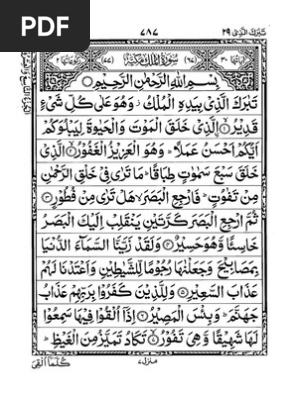 PDF
تبرك الذی ٢٩
٧٨٧
سُوْرَةُ الْمُلْكِ مَكِّيَّةٌ
بِسْمِ اللهِ الرَّحْمٰنِ الرَّحِيْمِ
تَبٰرَكَ الَّذِيْ بِيَدِهِ الْمُلْكُ وَهُوَ عَلٰى كُلِّ شَيْءٍ
قَدِيْرُ ۙ الَّذِيْ خَلَقَ الْمَوْتَ وَالْحَيٰوةَ لِيَبْلُوَكُمْ
اَيُّكُمْ اَحْسَنُ عَمَلًا ؕ وَهُوَ الْعَزِيْزُ الْغَفُوْرُ ۙ الَّذِيْ
خَلَقَ سَبْعَ سَمٰوٰتٍ طِبَاقًا ؕ مَا تَرٰى فِيْ خَلْقِ الرَّحْمٰنِ
مِنْ تَفٰوُتٍ ؕ فَارْجِعِ الْبَصَرَ ۙ هَلْ تَرٰى مِنْ فُطُوْرٍ
ثُمَّ ارْجِعِ الْبَصَرَ كَرَّتَيْنِ يَنْقَلِبْ اِلَيْكَ الْبَصَرُ
خَاسِئًا وَّهُوَ حَسِيْرٌ وَلَقَدْ زَيَّنَّا السَّمَآءَ الدُّنْيَا
بِمَصَابِيْحَ وَجَعَلْنٰهَا رُجُوْمًا لِّلشَّيٰطِيْنِ وَاَعْتَدْنَا لَهُمْ
عَذَابَ السَّعِيْرِ وَلِلَّذِيْنَ كَفَرُوْا بِرَبِّهِمْ عَذَابُ
جَهَنَّمَ ؕ وَبِئْسَ الْمَصِيْرُ اِذَآ اُلْقُوْا فِيْهَا سَمِعُوْا
لَهَا شَهِيْقًا وَّهِيَ تَفُوْرُ ۙ تَكَادُ تَمَيَّزُ مِنَ الْغَيْظِ ؕ
منزل ٧
كُلَّمَآ اُلْقِيَ